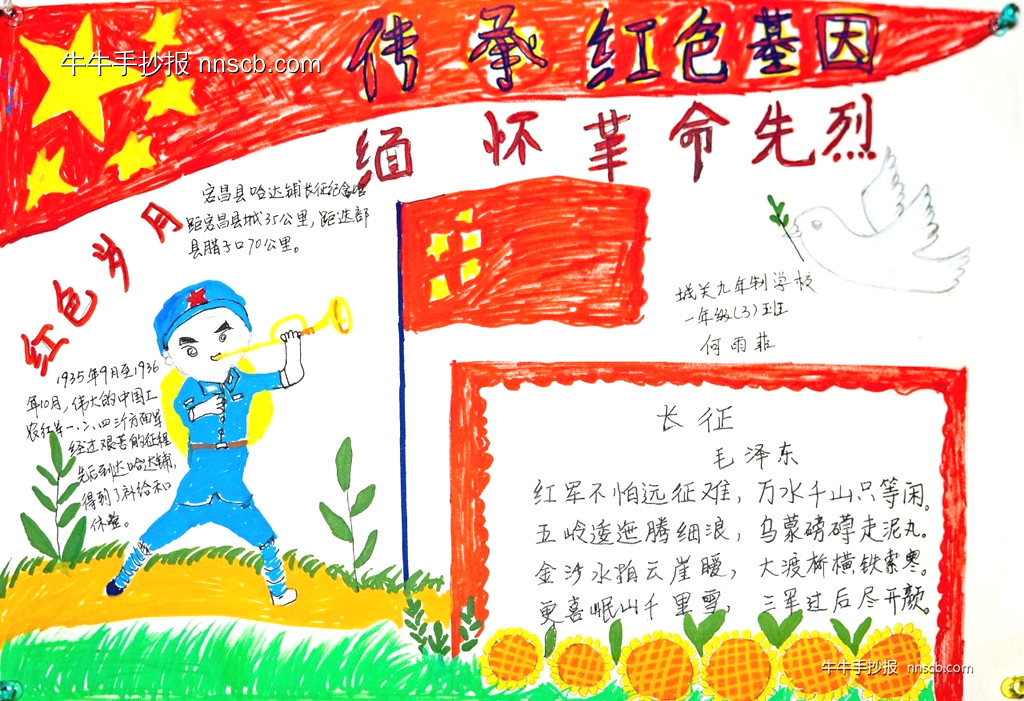 牛牛手抄报 nnscb.com
传承红色基因
缅怀革命先烈
红色岁月
宕昌县哈达铺长征纪念馆
距宕昌县城35公里,距迭部
县腊子口70公里。
城关九年制学校
一年级(3)班
何雨菲
1935年9月至1936
年10月,伟大的中国工
农红军一、二、四三个方面军
经过艰苦的征程
先后到达哈达铺,
得到了补给和
休整。
长征
毛泽东
红军不怕远征难,万水千山只等闲。
五岭逶迤腾细浪,乌蒙磅礴走泥丸。
金沙水拍云崖暖,大渡桥横铁索寒。
更喜岷山千里雪,三军过后尽开颜。
牛牛手抄报 nnscb.com